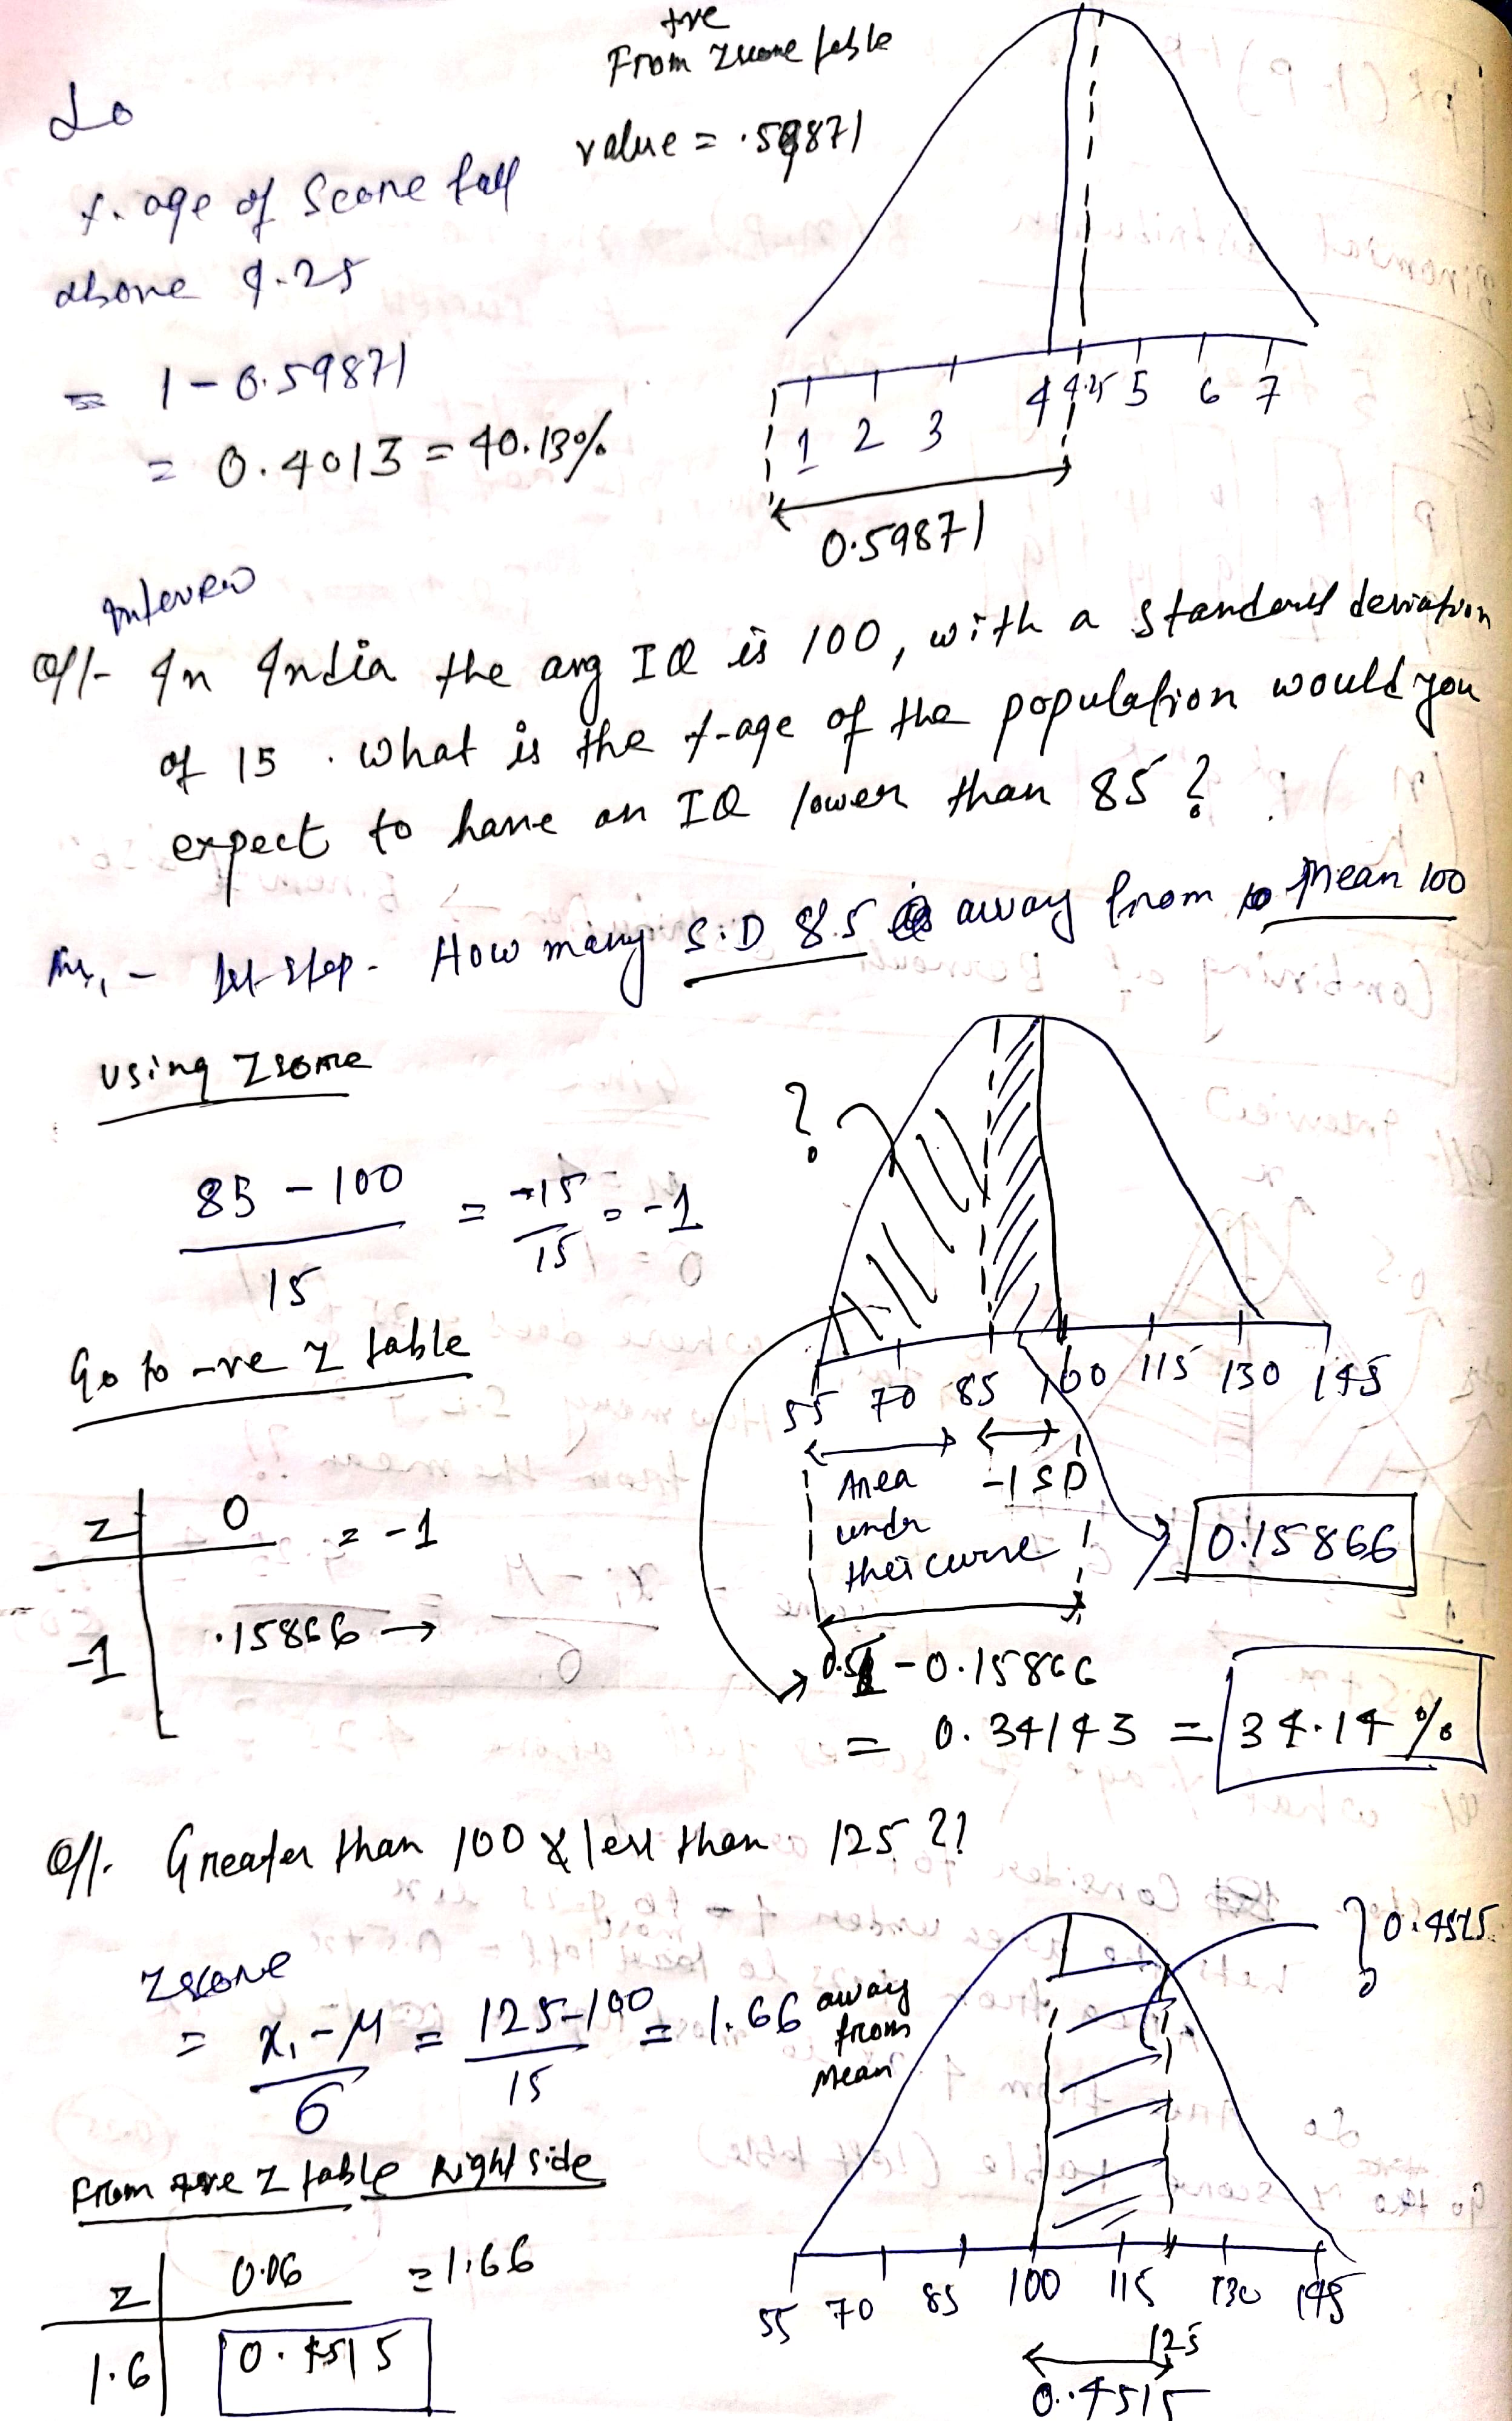 +ve
From Zscore table
value = .59871
So
%age of Score fall
above 4.25
= 1 - 0.59871
= 0.4013 = 40.13%
1 2 3 4 4.25 5 6 7
0.59871
Interview
Q// - In India the avg IQ is 100, with a standard deviation
of 15 . What is the %-age of the population would you
expect to have an IQ lower than 85 ?
Ans, - 1st step - How many S.D 85 is away from to Mean 100
Using Zscore
85 - 100 / 15 = -15 / 15 = -1
Go to -ve Z table
Z 0 = -1
-1 .15866 →
?
55 70 85 100 115 130 145
Area
under
their curve
-1 SD
0.15866
0.5 - 0.15866
= 0.34143 = 34.14 %
Q//. Greater than 100 & less than 125 ??
Zscore
= xi - μ / σ = 125-100 / 15 = 1.66 away
from
Mean
? 0.4515
From +ve Z table Right side
Z 0.06 = 1.66
1.6 0.4515
55 70 85 100 115 130 145
125
0.4515